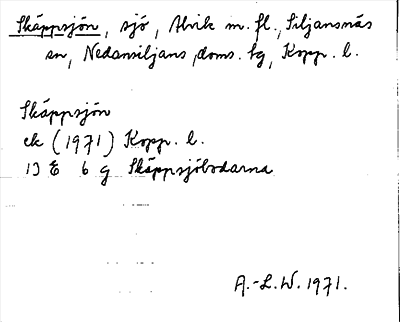 Skäppsjön, sjö, Alvik m. fl., Siljansnäs
sn, Nedansiljans doms. tg, Kopp. l.
Skäppsjön
ek (1971) Kopp. l.
13 E 6 g Skäppsjöbodarna
A.-L.W. 1971.